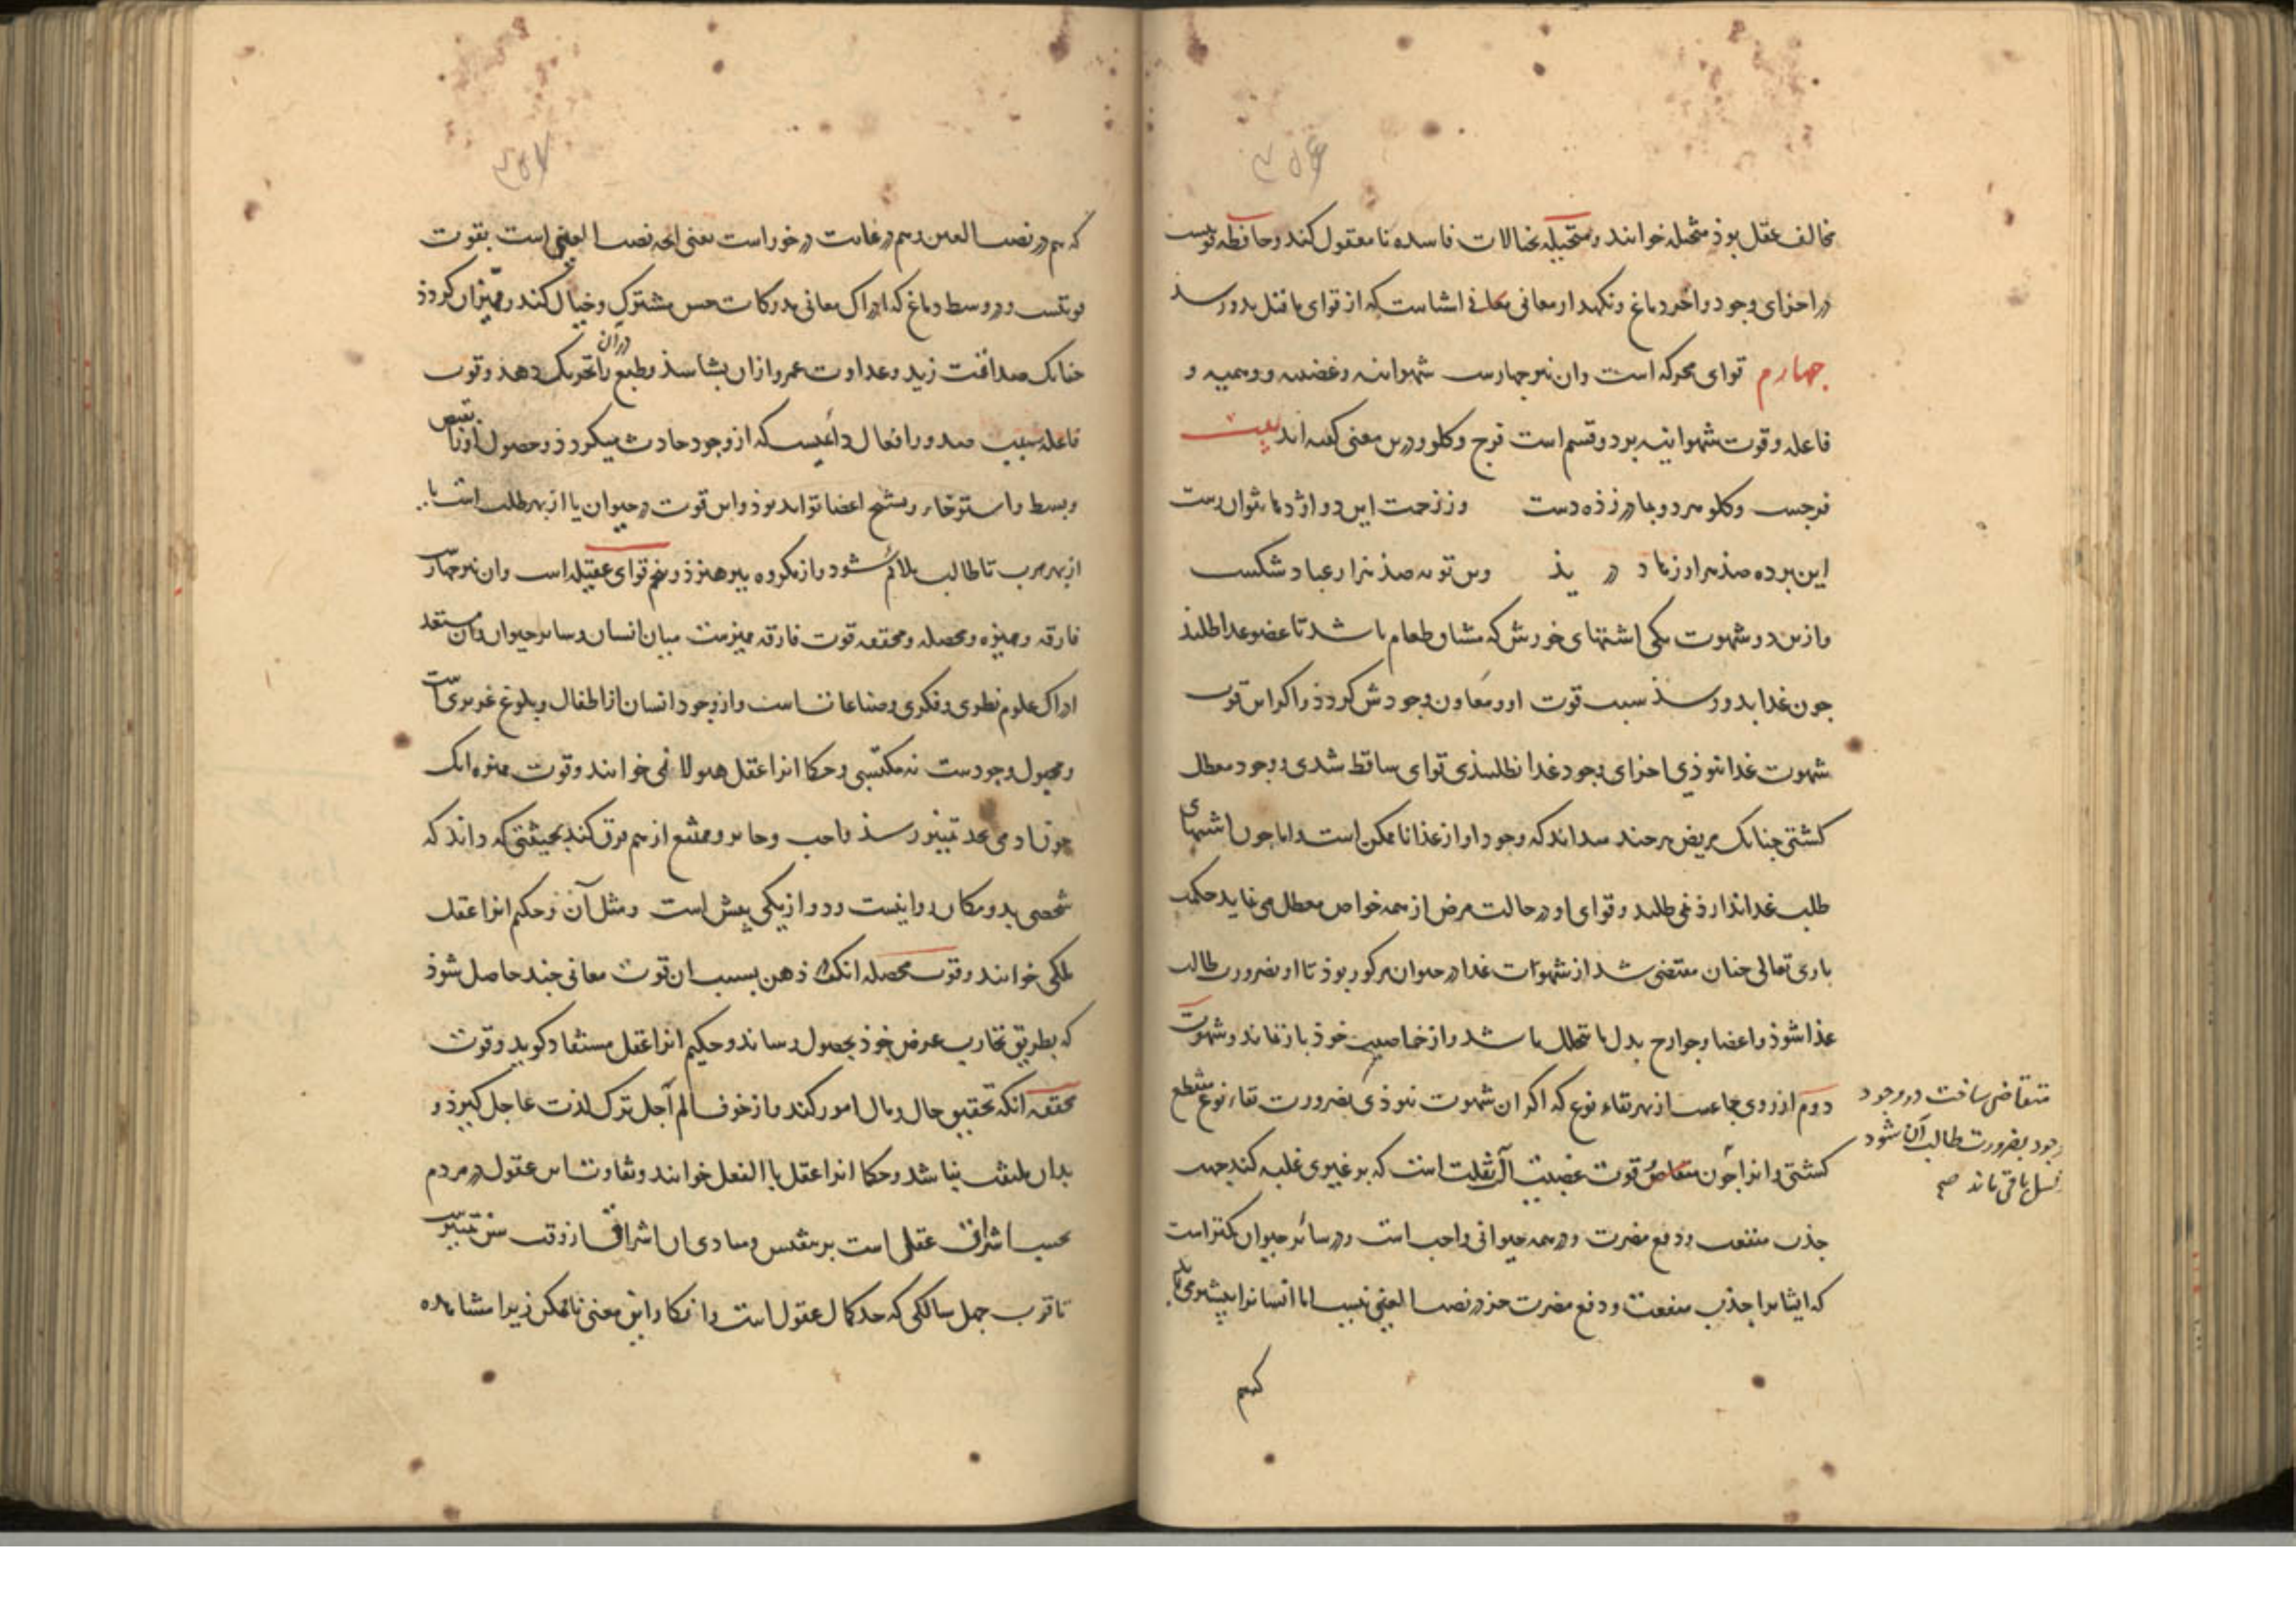 ۳۵۶
مخالف عقل بوذ متخیله خوانند و متخیله بخیالات فاسده نامعقول کند و حافظه قوتیست
در اجزای وجود و اخر دماغ و نکهدار معانی معانی اشیاست که از قوای ماقبل بدو رسذ
چهارم قوای محرکه است وان نیز چهارست شهوانیه و غضبیه و وهمیه و
فاعله و قوت شهوانیه بر دو قسم است فرج و کلو و درین معنی کفته اند بیت
فرجست و کلو مرد و بها در زذه دست وز زحمت این دو اژدها نتوان رست
این پرده صذ هزار زهاد درید وین توبه صذ هزار عباد شکست
و ازین دو شهوت یکی اشتهای خورش که منشاء طعام باشد تا عضو غدا طلبذ
چون غدا بدو رسذ سبب قوت او و معاون وجودش کردذ و اکر این قوت
شهوت غدا نبوذی اجزای وجود غدا نطلبیذی قوای ساقط شدی و وجود معطل
کشتی چنانک مریض هر چند میداند که وجود او از غذا ناممکن است اما چون اشتهای
طلب غدا ندارذ نمی طلبد و قوای او در حالت مرض از همه خواص معطل می نماید حکمت
باری تعالی چنان مقتضی شد از شهوات غدا در حیوان مرکوز بوذ تا او بضرورت طالب
غذا شوذ و اعضا و جوارح بدل ما تحلل باشد و از خاصیت خوذ باز نماند و شهوت
دوم از روی مجامعت از بهر بقاء نوع که اکر ان شهوت نبوذی بضرورت بقاء نوع منقطع
کشتی و انرا چون متقاضی قوت غضبیت الٓت غلبت است که بر غیری غلبه کند جهت
جذب منفعت و دفع مضرت و در همه حیوانی واجب است و در سائر حیوان کمتر است
که ایشانرا جذب منفعت و دفع مضرت جز در نصب العینی نیست اما انسانرا بیشتر می باید
متقاضی ساخت در وجود
وجود بضرورت طالب آن شود
نسل باقی ماند صح
که هم
۳۵۷
که هم در نصب العین و هم در غایت در خور است یعنی انچه نصب العینی است بقوت
قوتیست در وسط دماغ که ادراک معانی مدرکات حس مشترک و خیال کند و ممیز ان کردذ
چنانک صداقت زید و عداوت عمرو از ان بشناسذ و طبع را در ان تحریک دهد و قوت
فاعله سبب صدور افعال داعیست که از وجود حادث میکردذ و حصول او را بقبض
و بسط و استرخاء و تشنج اعضا تواند بوذ و این قوت در حیوان یا از بهر طلب است یا
از بهر هرب تا طالب ملائم شود و از مکروه بپرهیزذ و پنجم قوای عقلیه است وان نیز چهارست
فارقه و ممیزه و محصله و محققه قوت فارقه ممیزست میان انسان و سایر حیوان وان مستعد
ادراک علوم نظری و فکری و صناعاتست و از وجود انسان از اطفال و بلوغ غریزی است
و مجبول وجودست نه مکتسبی و حکما انرا عقل هیولانی خوانند و قوت ممیزه انک
چون ادمی بحد تمییز رسذ واجب و جایز و ممتنع از هم فرق کند بحیثیتی که داند که
شخصی بدو مکان روا نیست و دو از یکی بیش است و مثل آن و حکیم انرا عقل
ملکی خوانند و قوت محصله انک ذهن بسبب ان قوت معانی چند حاصل شوذ
که بطریق تجارب عرض خوذ بحصول رساند و حکیم انرا عقل مستفاد کوید و قوت
محققه انکه تحقیق حال و مال امور کند و از خوف الم آجل ترک لذت عاجل کیرذ و
بدان ملتفت نباشد و حکما انرا عقل بالفعل خوانند و تفاوت این عقول در مردم
بحسب اشراق عقل است بر نفس و مبادی ان اشراق از وقت سن تمییزست
تا قرب چهل سالکی که حد کمال عقول است و انکار این معنی ناممکن زیرا مشاهده